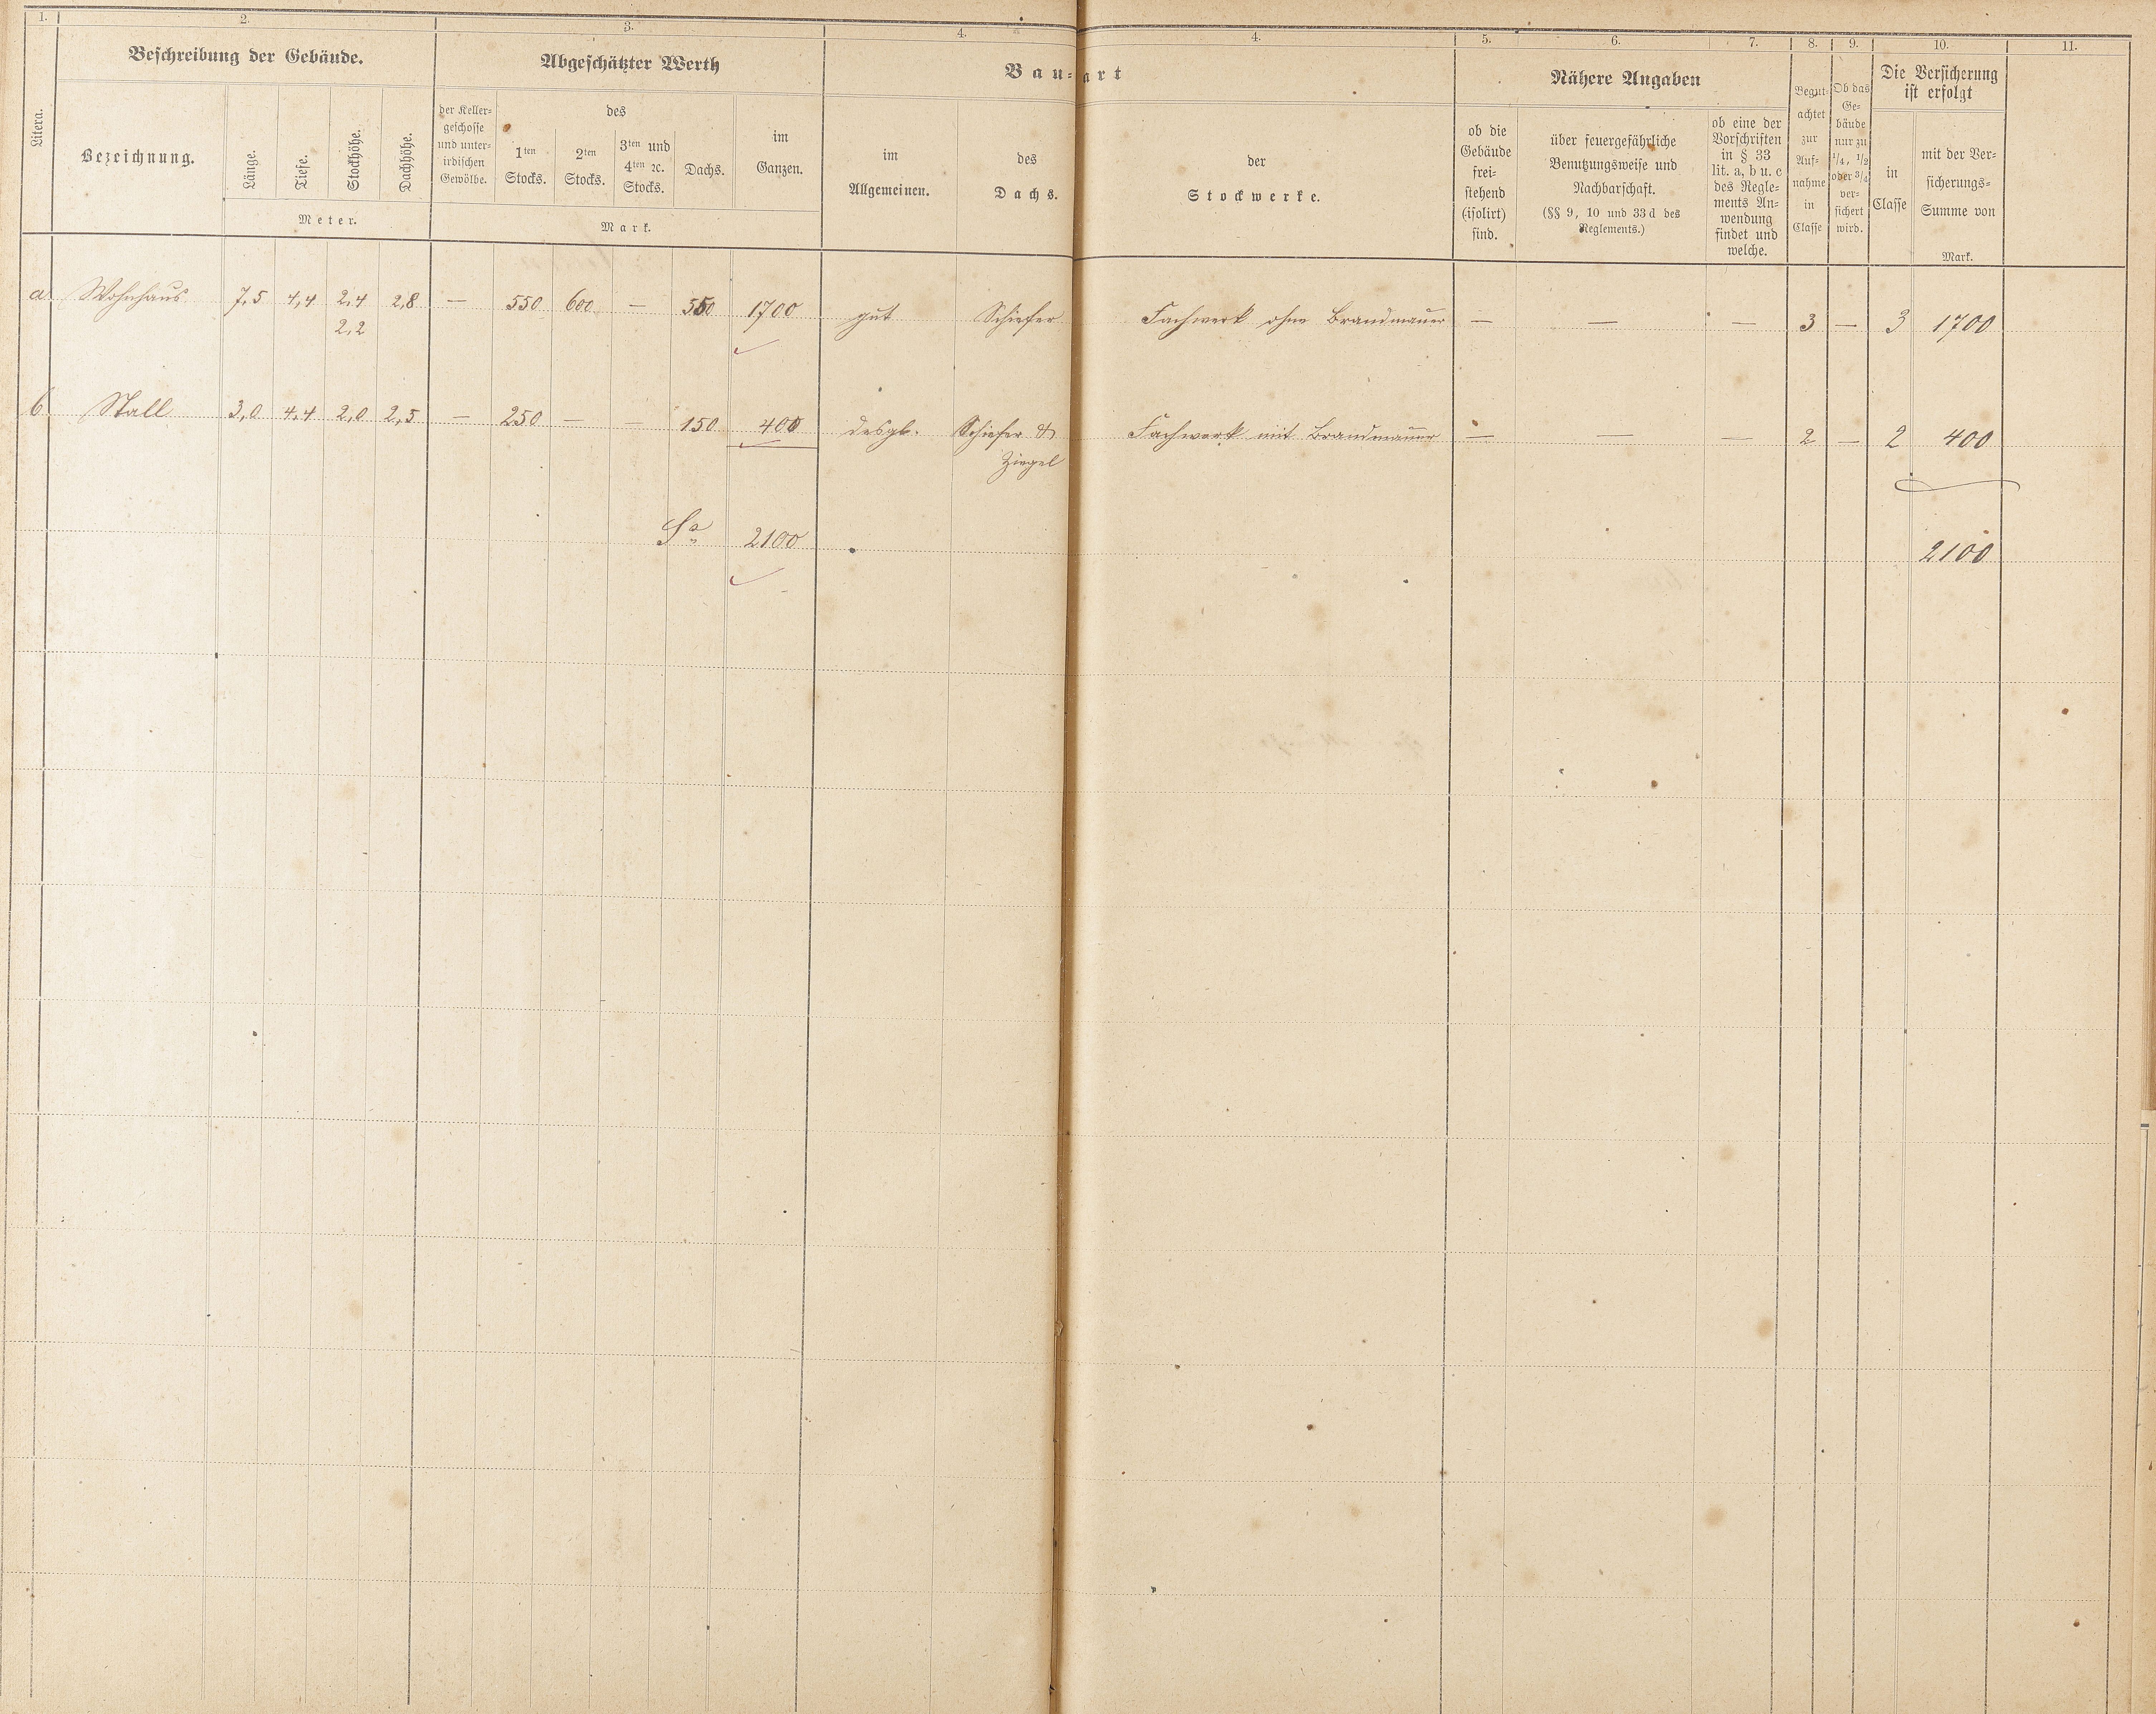 1. 2. 3. 4. 4. 5. 6. 7. 8. 9. 10. 11.
Litera.
Beschreibung der Gebäude.
Bezeichnung.
Länge.
Tiefe.
Stockhöhe.
Dachhöhe.
Meter.
Abgeschätzter Werth
der Keller-
geschosse
und unter-
irdischen
Gewölbe.
des
1ten
Stocks.
2ten
Stocks.
3ten und
4ten ꝛc.
Stocks.
Dachs.
im
Ganzen.
Mark.
Bau-art
im
Allgemeinen.
des
Dachs.
der
Stockwerke.
Nähere Angaben
ob die
Gebäude
frei-
stehend
(isolirt)
sind.
über feuergefährliche
Benutzungsweise und
Nachbarschaft.
(§§ 9, 10 und 33 d des
Reglements.)
ob eine der
Vorschriften
in § 33
lit. a, b u. c
des Regle-
ments An-
wendung
findet und
welche.
Begut-
achtet
zur
Auf-
nahme
in
Classe
Ob das
Ge-
bäude
nur zu
1/4, 1/2
oder 3/4
ver-
sichert
wird.
Die Versicherung
ist erfolgt
in
Classe
mit der Ver-
sicherungs-
Summe von
Mark.
a. Wohnhaus 7,5 4,4 2,4 2,8 — 550 600 — 550 1700 gut Schiefer Fachwerk ohne Brandmauer — — — 3 — 3 1700
2,2
b. Stall 3,0 4,4 2,0 2,5 — 250 — — 150 400 desgl. Schiefer & Fachwerk mit Brandmauer — — — 2 — 2 400
Ziegel
Sa 2100 2100